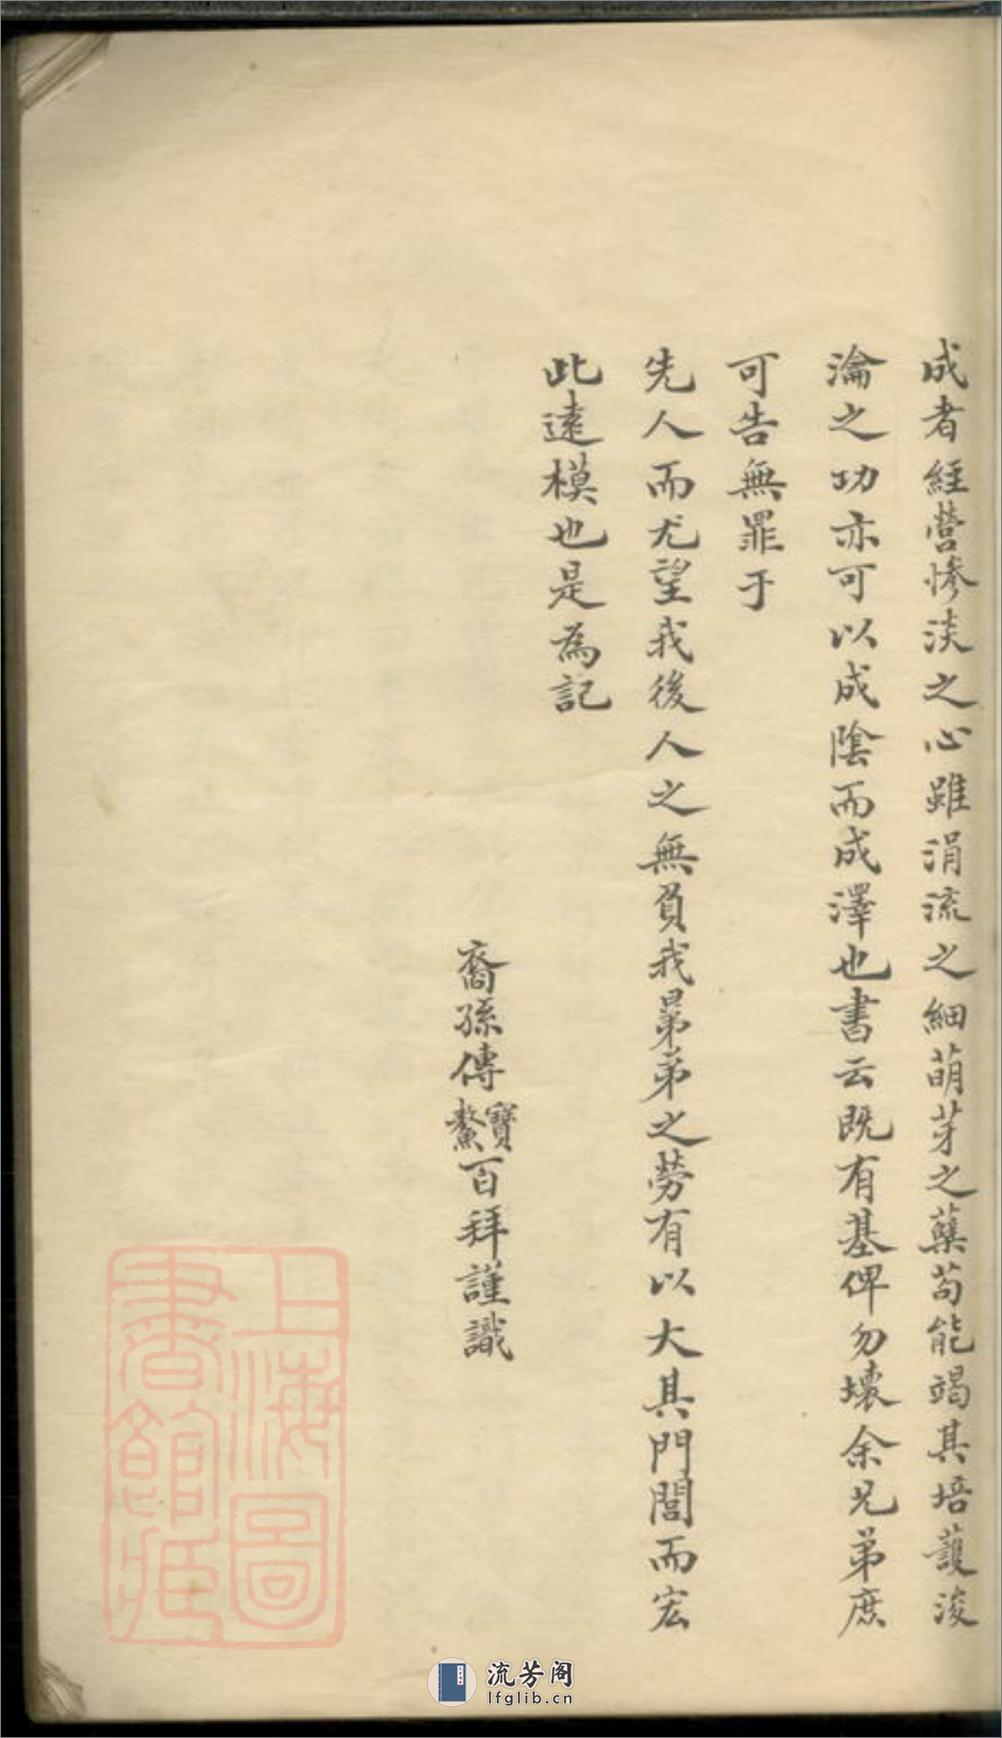 成者經營慘淡之心雖涓流之細萌芽之蘖苟能竭其培護浚
瀹之功亦可以成陰而成澤也書云既有基俾勿壞余兄弟庶
可告無罪于
先人而尤望我後人之無負我晜弟之勞有以大其門閭而宏
此遠模也是為記
裔孫傳寶鰲百拜謹識
上海圖
書館藏
流芳阁
lfglib.cn